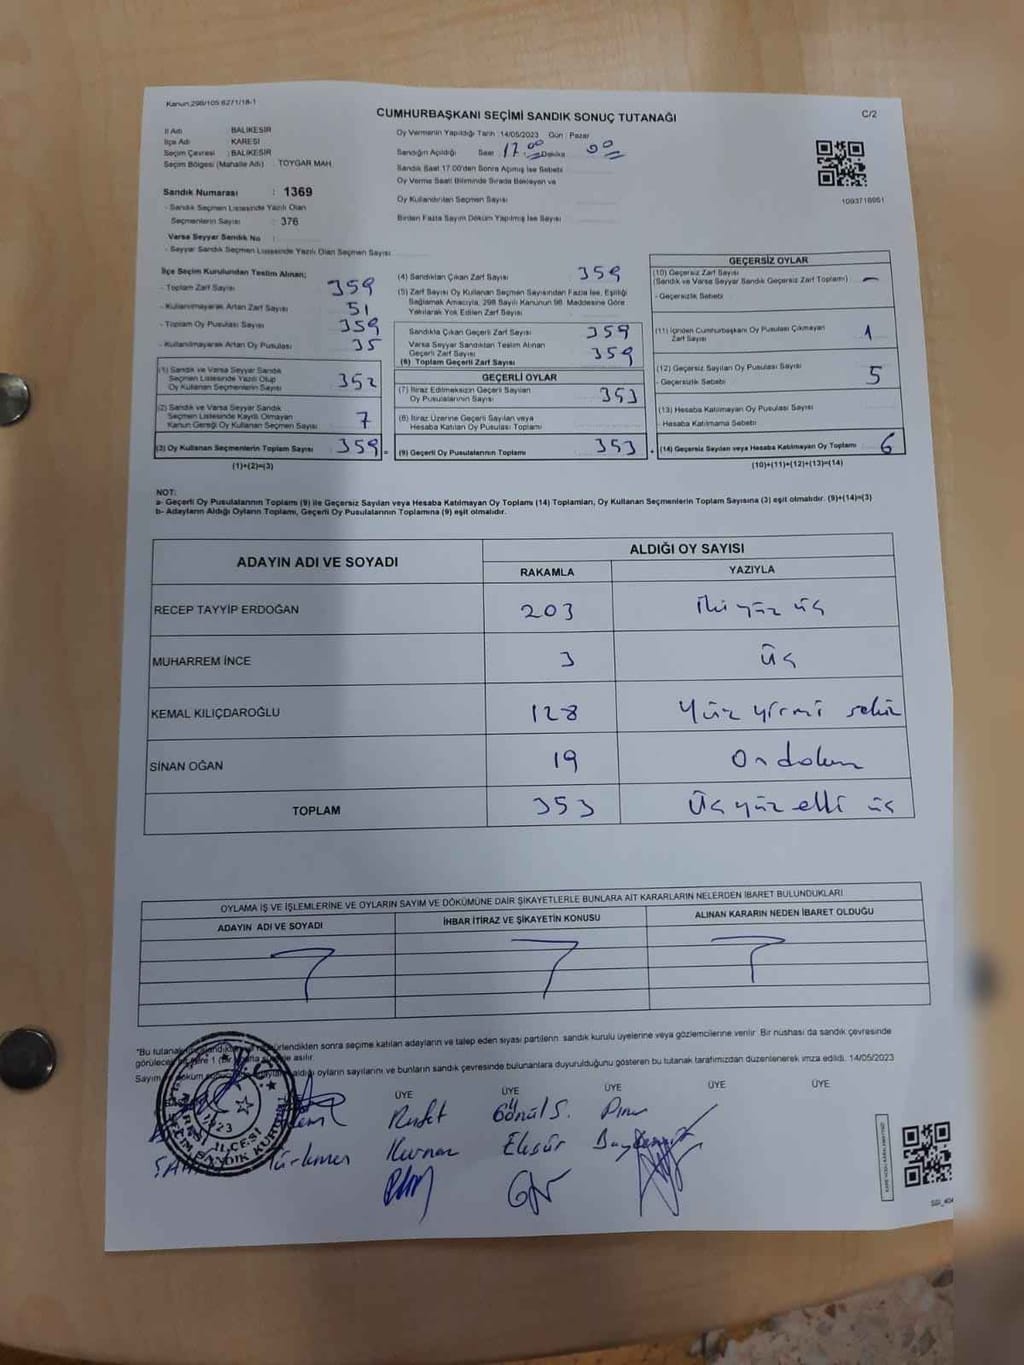 Kanun:298/105 6271/18-1
CUMHURBAŞKANI SEÇİMİ SANDIK SONUÇ TUTANAĞI
C/2
İl Adı : BALIKESİR
İlçe Adı : KARESİ
Seçim Çevresi : BALIKESİR
Seçim Bölgesi (Mahalle Adı) : TOYGAR MAH.
Sandık Numarası : 1369
- Sandık Seçmen Listesinde Yazılı Olan
Seçmenlerin Sayısı : 376
Varsa Seyyar Sandık No :
- Seyyar Sandık Seçmen Listesinde Yazılı Olan Seçmen Sayısı
Oy Vermenin Yapıldığı Tarih :14/05/2023 Gün : Pazar
Sandığın Açıldığı Saat : 17.00 Dakika 00
Sandık Saat 17.00'den Sonra Açılmış İse Sebebi
Oy Verme Saati Bitiminde Sırada Bekleyen ve
Oy Kullandırılan Seçmen Sayısı
Birden Fazla Sayım Döküm Yapılmış İse Sayısı
1093716661
İlçe Seçim Kurulundan Teslim Alınan;
- Toplam Zarf Sayısı 359
- Kullanılmayarak Artan Zarf Sayısı 51
- Toplam Oy Pusulası Sayısı 359
- Kullanılmayarak Artan Oy Pusulası 35
(1) Sandık ve Varsa Seyyar Sandık
Seçmen Listesinde Yazılı Olup
Oy Kullanan Seçmenlerin Sayısı 352
(2) Sandık ve Varsa Seyyar Sandık
Seçmen Listesinde Kayıtlı Olmayan
Kanun Gereği Oy Kullanan Seçmen Sayısı 7
(3) Oy Kullanan Seçmenlerin Toplam Sayısı 359
(1)+(2)=(3)
(4) Sandıktan Çıkan Zarf Sayısı 359
(5) Zarf Sayısı Oy Kullanan Seçmen Sayısından Fazla İse, Eşitliği
Sağlamak Amacıyla, 298 Sayılı Kanunun 98. Maddesine Göre
Yakılarak Yok Edilen Zarf Sayısı
Sandıkta Çıkan Geçerli Zarf Sayısı 359
Varsa Seyyar Sandıktan Teslim Alınan
Geçerli Zarf Sayısı
(6) Toplam Geçerli Zarf Sayısı 359
GEÇERLİ OYLAR
(7) İtiraz Edilmeksizin Geçerli Sayılan
Oy Pusulalarının Sayısı 353
(8) İtiraz Üzerine Geçerli Sayılan veya
Hesaba Katılan Oy Pusulası Toplamı
(9) Geçerli Oy Pusulalarının Toplamı 353
GEÇERSİZ OYLAR
(10) Geçersiz Zarf Sayısı
(Sandık ve Varsa Seyyar Sandık Geçersiz Zarf Toplamı) –
- Geçersizlik Sebebi
(11) İçinden Cumhurbaşkanı Oy Pusulası Çıkmayan
Zarf Sayısı 1
(12) Geçersiz Sayılan Oy Pusulası Sayısı
- Geçersizlik Sebebi 5
(13) Hesaba Katılmayan Oy Pusulası Sayısı
- Hesaba Katılmama Sebebi
(14) Geçersiz Sayılan veya Hesaba Katılmayan Oy Toplamı 6
(10)+(11)+(12)+(13)=(14)
NOT:
a- Geçerli Oy Pusulalarının Toplamı (9) ile Geçersiz Sayılan veya Hesaba Katılmayan Oy Toplamı (14) Toplamları, Oy Kullanan Seçmenlerin Toplam Sayısına (3) eşit olmalıdır. (9)+(14)=(3)
b- Adayların Aldığı Oyların Toplamı, Geçerli Oy Pusulalarının Toplamına (9) eşit olmalıdır.
ADAYIN ADI VE SOYADI
ALDIĞI OY SAYISI
RAKAMLA YAZIYLA
RECEP TAYYİP ERDOĞAN 203 İki yüz üç
MUHARREM İNCE 3 Üç
KEMAL KILIÇDAROĞLU 128 Yüz yirmi sekiz
SİNAN OĞAN 19 On dokuz
TOPLAM 353 Üç yüz elli üç
OYLAMA İŞ VE İŞLEMLERİNE VE OYLARIN SAYIM VE DÖKÜMÜNE DAİR ŞİKAYETLERLE BUNLARA AİT KARARLARIN NELERDEN İBARET BULUNDUKLARI
ADAYIN ADI VE SOYADI İHBAR İTİRAZ VE ŞİKAYETİN KONUSU ALINAN KARARIN NEDEN İBARET OLDUĞU
"Bu tutanak sonra seçime katılan adayların ve talep eden siyasi partilerin sandık kurulu üyelerine veya gözlemcilerine verilir. Bir nüshası da sandık çevresinde
asılır.
Sayım döküm aldığı oyların sayılarını ve bunların sandık çevresinde bulunanlara duyurulduğunu gösteren bu tutanak tarafımızdan düzenlenerek imza edildi. 14/05/2023
ÜYE ÜYE ÜYE ÜYE ÜYE
Gönül S. Pınar
Türkmen
KARESİ İLÇESİ
SANDIK KURULU